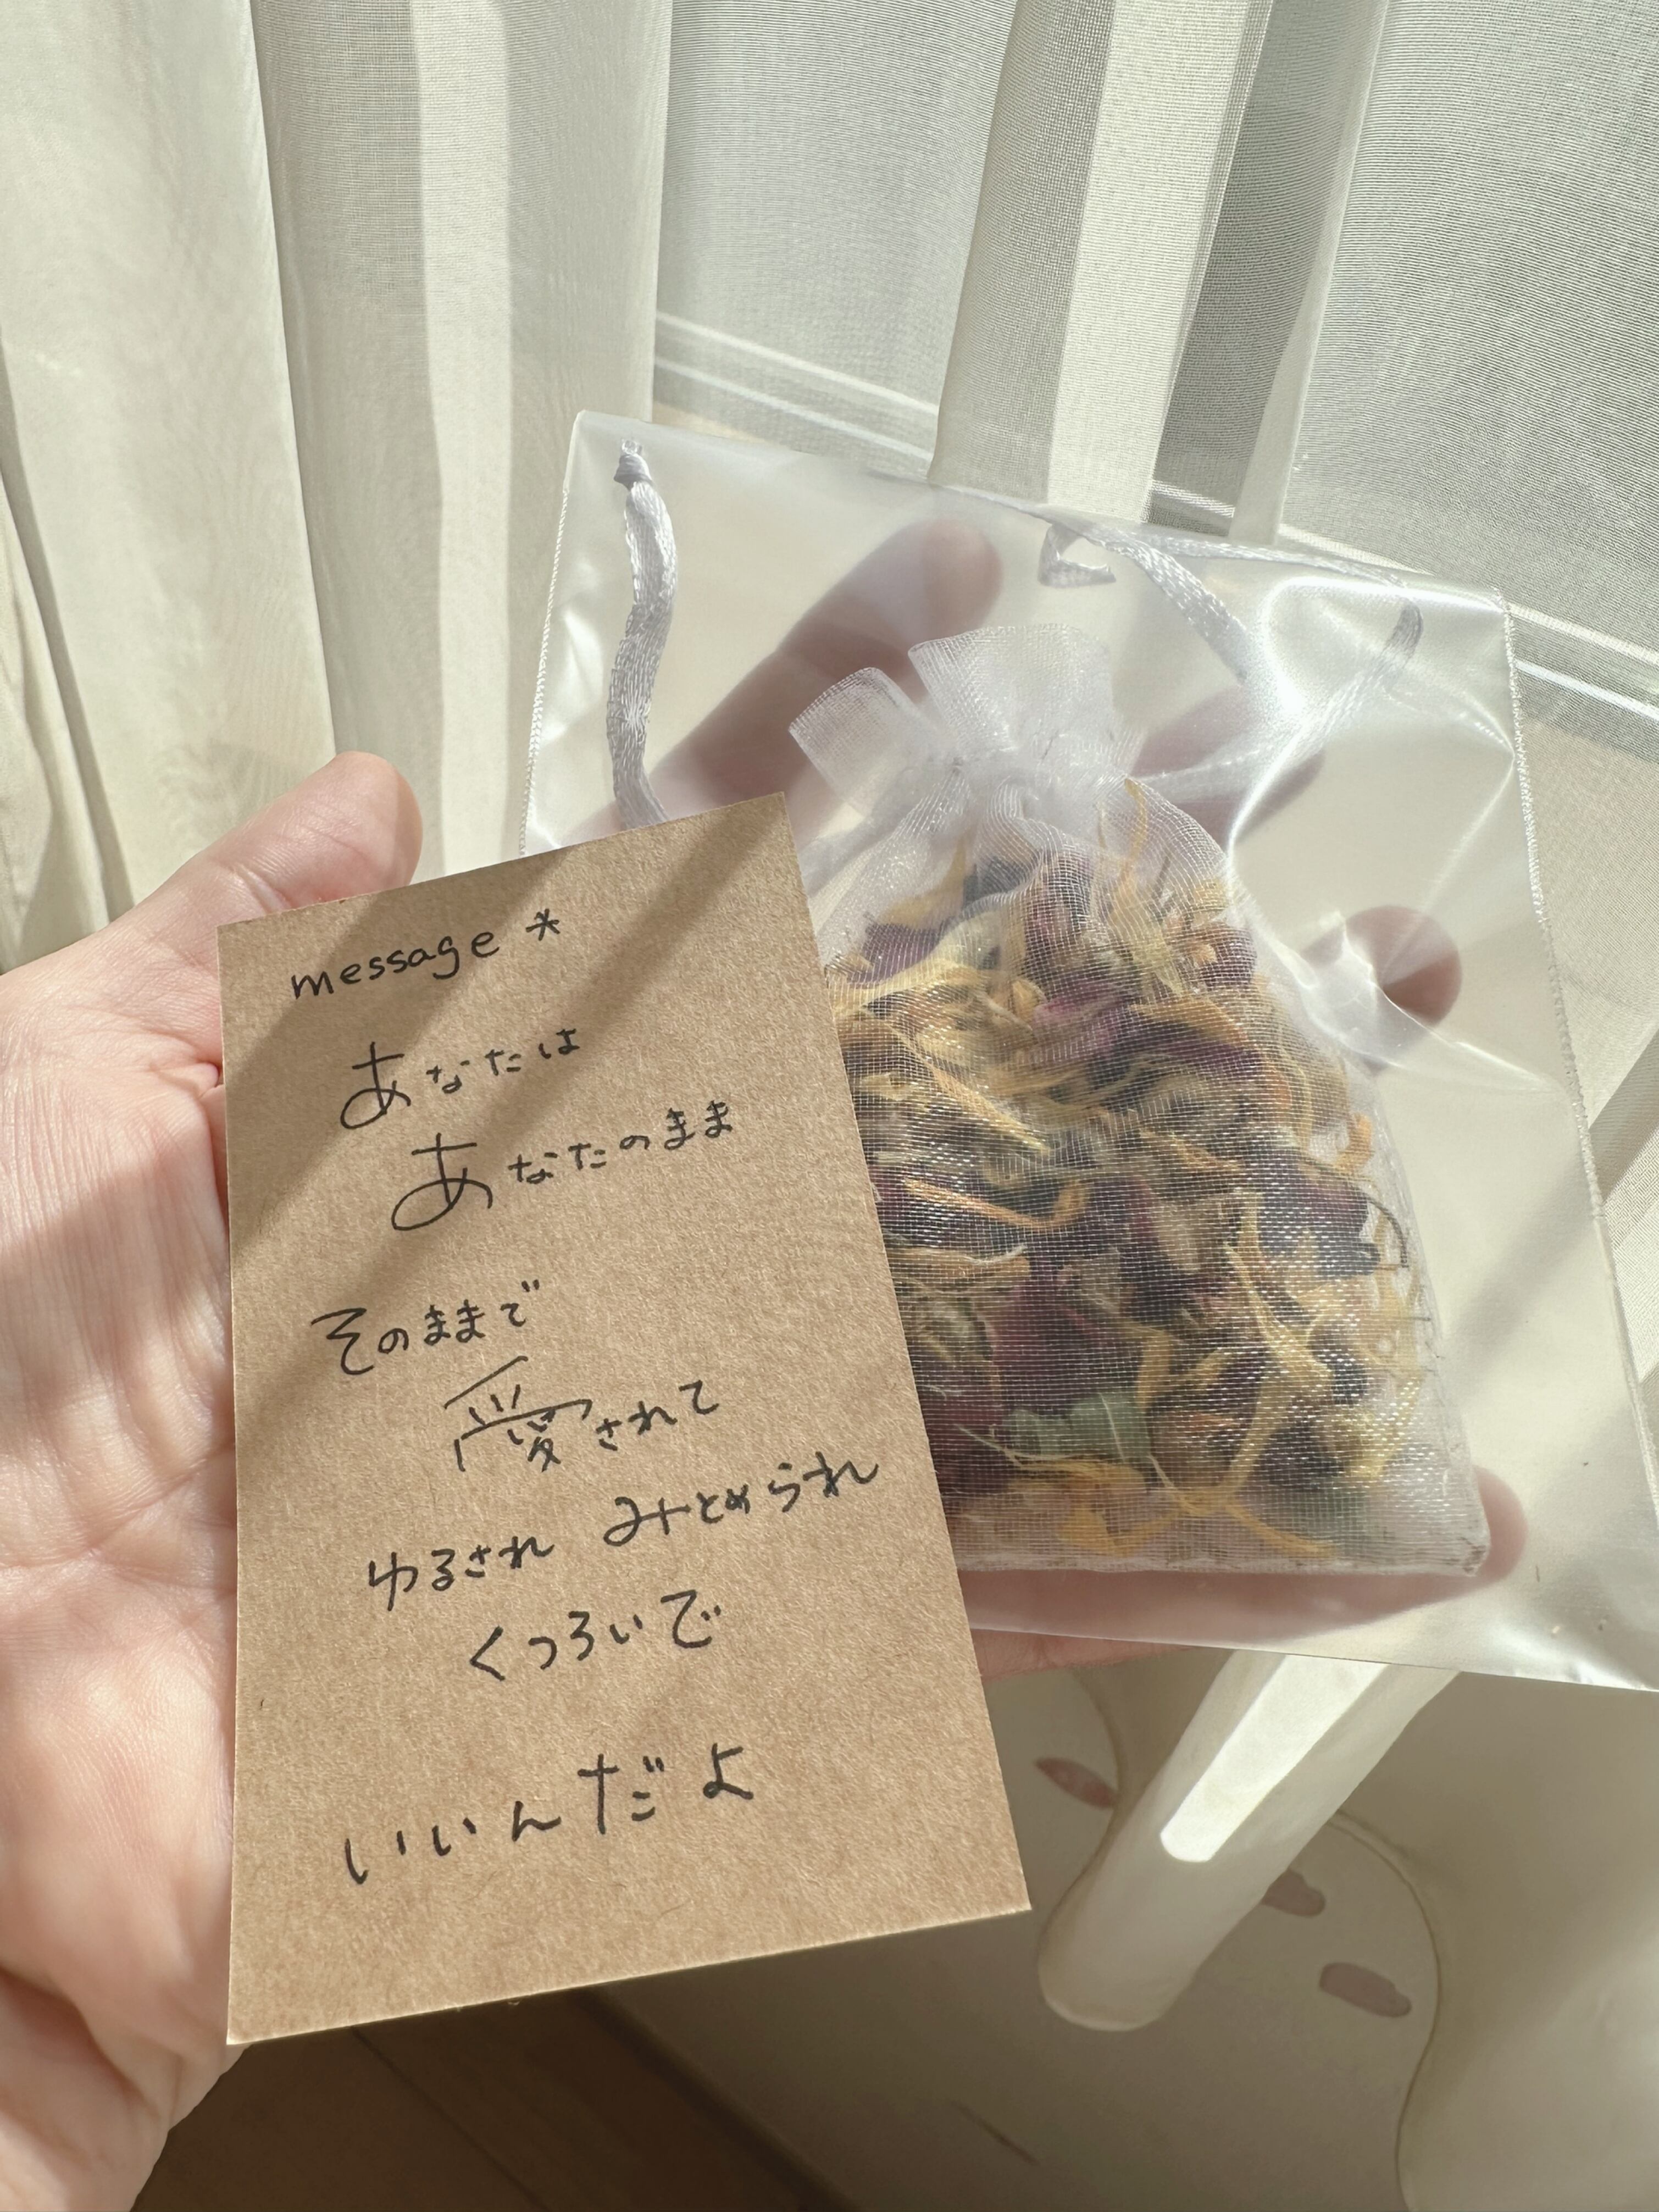 message *
あなたは
あなたのまま
そのままで
愛されて
ゆるされ みとめられ
くつろいで
いいんだよ